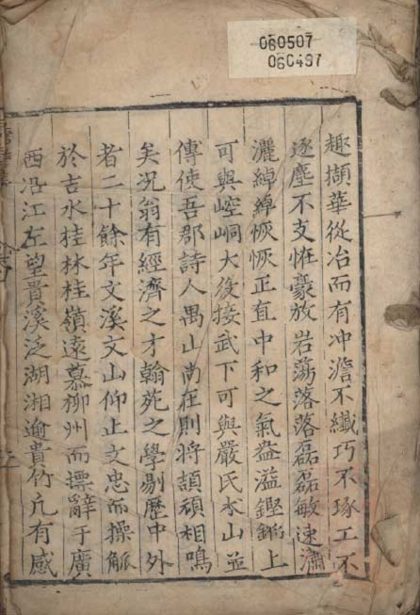 060507
060497
趣擷華從冶而有冲澹不纖巧不琢工不
逐塵不支恠豪放岩蕩落落磊磊敏速瀟
灑綽綽恢恢正直中和之氣盎溢鏗鏘上
可與崆峒大復接武下可與嚴氏氷山並
傳使吾郡詩人禺山尚在則將頡頏相鳴
矣况翁有經濟之才翰苑之學剔歷中外
者二十餘年文溪文山仰止文忠而操觚
於吉水桂林桂嶺遠慕柳州而摛辭于廣
西沿江左望貴溪泛湖湘逾貴竹凢有感